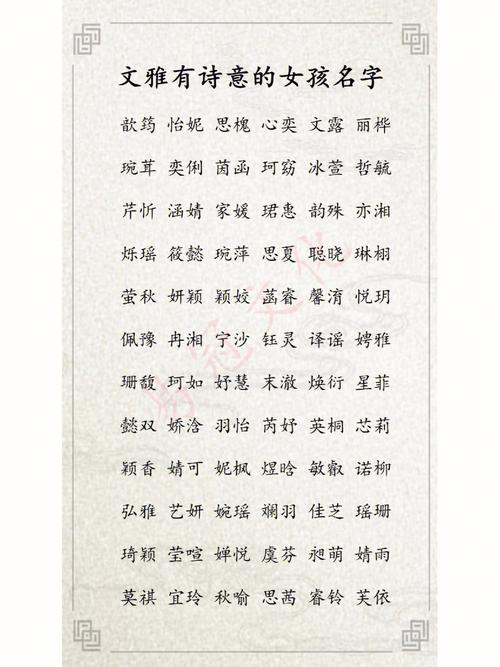 文雅有诗意的女孩名字
歆筠 怡妮 思槐 心奕 文露 丽桦
琬茸 奕俐 茵函 珂窈 冰萱 哲毓
芹忻 涵婧 家媛 珺惠 韵殊 亦湘
烁瑶 筱懿 琬萍 思夏 聪晓 琳栩
萤秋 妍颖 颖姣 菡睿 馨淯 悦玥
佩豫 冉湘 宁沙 钰灵 译谣 娉雅
珊馥 珂如 妤慧 末澈 焕衍 星菲
懿双 娇浛 羽怡 芮妤 英桐 芯莉
颖香 婧可 妮枫 煜晗 敏叡 诺柳
弘雅 艺妍 婉瑶 斓羽 佳芝 瑶珊
琦颖 莹喧 婵悦 虞芬 昶萌 婧雨
莫祺 宜玲 秋喻 思茜 睿铃 芙依